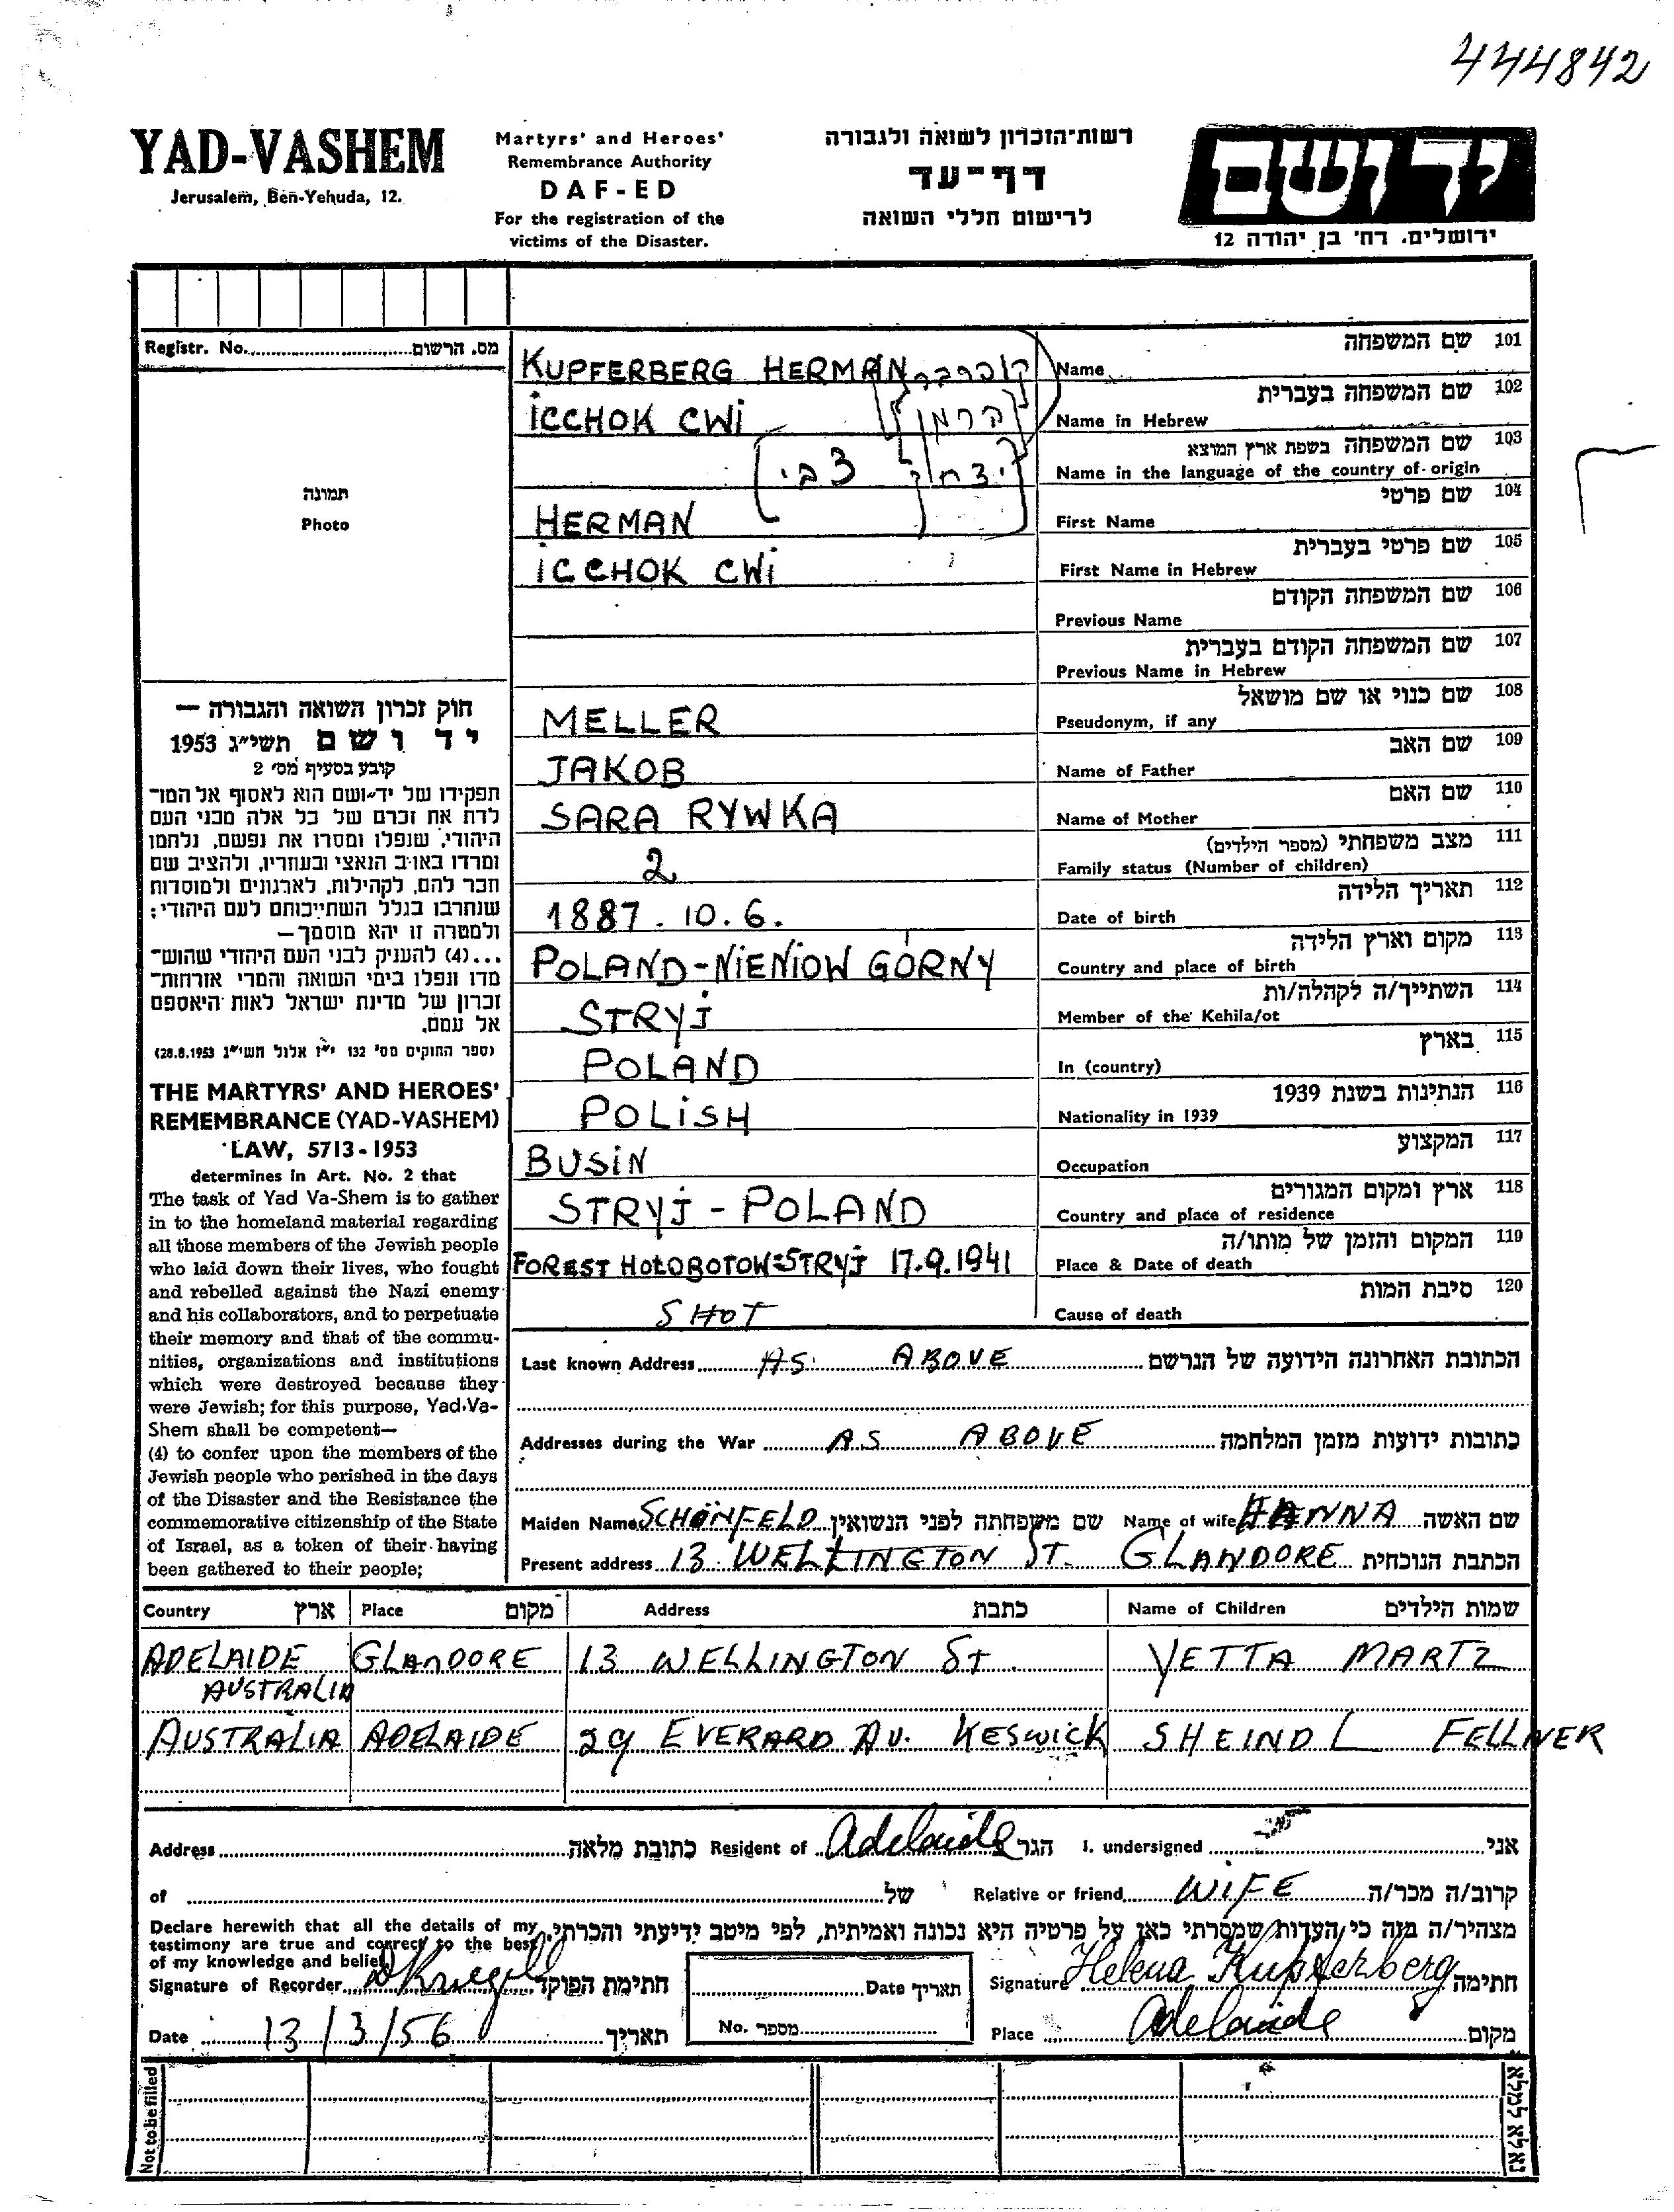 444842
YAD-VASHEM
Jerusalem, Ben-Yehuda, 12.
Martyrs' and Heroes'
Remembrance Authority
DAF-ED
For the registration of the
victims of the Disaster.
רשות־הזכרון לשואה ולגבורה
דף־עד
לרישום חללי השואה
יד ושם
ירושלים. רח' בן יהודה 12
Registr. No. מס. הרשום
תמונה
Photo
חוק זכרון השואה והגבורה —
יד ושם תשי״ג 1953
קובע בסעיף מס' 2
תפקידו של יד־ושם הוא לאסוף אל המו־
לדת את זכרם של כל אלה מבני העם
היהודי, שנפלו ומסרו את נפשם, נלחמו
ומרדו באויב הנאצי ובעוזריו, ולהציב שם
וזכר להם, לקהילות, לארגונים ולמוסדות
שנחרבו בגלל השתייכותם לעם היהודי;
ולמטרה זו יהא מוסמך—
...(4) להעניק לבני העם היהודי שהוש־
מדו ונפלו בימי השואה והמרי אזרחות־
זכרון של מדינת ישראל לאות היאספם
אל עמם.
(ספר החוקים מס' 132 י״ז אלול תשי״ג 28.8.1953)
THE MARTYRS' AND HEROES'
REMEMBRANCE (YAD-VASHEM)
LAW, 5713-1953
determines in Art. No. 2 that
The task of Yad Va-Shem is to gather
in to the homeland material regarding
all those members of the Jewish people
who laid down their lives, who fought
and rebelled against the Nazi enemy
and his collaborators, and to perpetuate
their memory and that of the commu-
nities, organizations and institutions
which were destroyed because they
were Jewish; for this purpose, Yad-Va-
Shem shall be competent—
(4) to confer upon the members of the
Jewish people who perished in the days
of the Disaster and the Resistance the
commemorative citizenship of the State
of Israel, as a token of their having
been gathered to their people;
101 שם המשפחה
KUPFERBERG HERMAN קופרברג Name
102 שם המשפחה בעברית
ICCHOK CWI הרמן Name in Hebrew
103 שם המשפחה בשפת ארץ המוצא
יצחק צבי Name in the language of the country of origin
104 שם פרטי
HERMAN First Name
105 שם פרטי בעברית
ICCHOK CWI First Name in Hebrew
106 שם המשפחה הקודם
Previous Name
107 שם המשפחה הקודם בעברית
Previous Name in Hebrew
108 שם כנוי או שם מושאל
MELLER Pseudonym, if any
109 שם האב
JAKOB Name of Father
110 שם האם
SARA RYWKA Name of Mother
111 מצב משפחתי (מספר הילדים)
2 Family status (Number of children)
112 תאריך הלידה
1887. 10. 6. Date of birth
113 מקום וארץ הלידה
POLAND-NIENIOW GÓRNY Country and place of birth
114 השתייך/ה לקהלה/ות
STRYJ Member of the Kehila/ot
115 בארץ
POLAND In (country)
116 הנתינות בשנת 1939
POLISH Nationality in 1939
117 המקצוע
BUSIN Occupation
118 ארץ ומקום המגורים
STRYJ - POLAND Country and place of residence
119 המקום והזמן של מותו/ה
FOREST HOŁOBOTOW-STRYJ 17.9.1941 Place & Date of death
120 סיבת המות
SHOT Cause of death
Last known Address AS ABOVE הכתובת האחרונה הידועה של הנרשם
Addresses during the War AS ABOVE כתובות ידועות מזמן המלחמה
Maiden Name SCHÖNFELD שם משפחתה לפני הנשואין Name of wife HANNA שם האשה
Present address 13 WELLINGTON ST. GLANDORE הכתבת הנוכחית
Country ארץ Place מקום Address כתבת Name of Children שמות הילדים
ADELAIDE GLANDORE 13 WELLINGTON St. YETTA MARTZ
AUSTRALIA
AUSTRALIA ADELAIDE 29 EVERARD AV. KESWICK SHEINDL FELLNER
Address כתובת מלאה Resident of Adelaide הגר I. undersigned אני
of של Relative or friend WIFE קרוב/ה מכר/ה
Declare herewith that all the details of my
testimony are true and correct to the best
of my knowledge and belief.
מצהיר/ה בזה כי העדות שמסרתי כאן על פרטיה היא נכונה ואמיתית, לפי מיטב ידיעתי והכרתי.
Signature of Recorder חתימת הפוקד Date תאריך Signature Helena Kupferberg חתימה
Date 13/3/56 תאריך No. מספר Place Adelaide מקום
Not to be filled
נא לא למלא